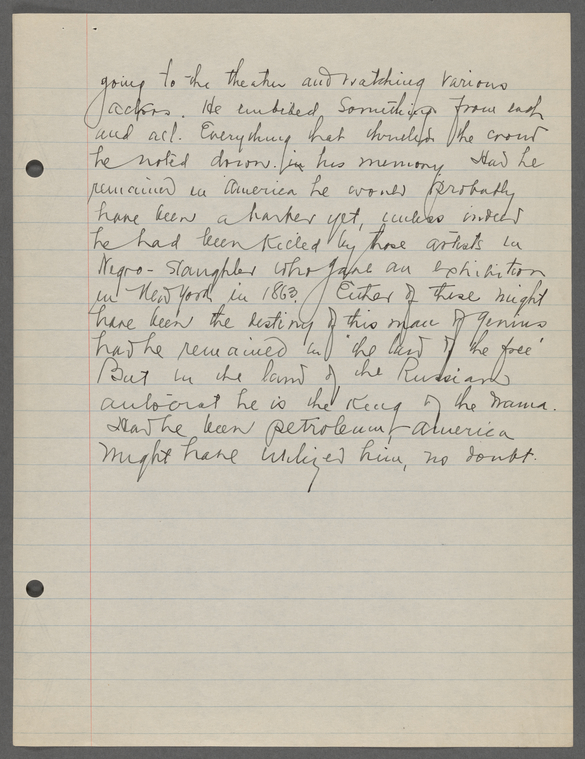 going to the theatre and watching various
actors. He imbibed something from each
and all. Everything that thrilled the crowd
he noted down in his memory. Had he
remained in America he would probably
have been a barber yet, unless indeed
he had been killed by those artists in
Negro-Slaughter who gave an exhibition
in New York in 1863. Either of these might
have been the destiny of this man of genius
had he remained in 'the land of the free'
But in the land of the Russian
autocrat he is the King of the Drama.
Had he been petroleum, America
might have utilized him, no doubt.